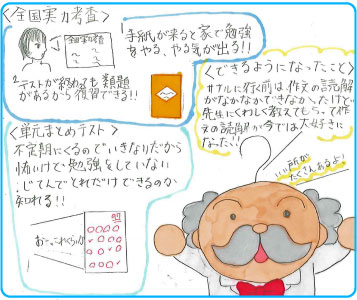 <全国実力考査>
1手紙が来ると家で勉強
をやる、やる気が出る!!
2テストが終わっても類題
があるから復習できる!!
<できるようになったこと>
サルに行く前は作文の読解
がなかなかできなかったけど
先生にくわしく教えてもらって作
文の読解が今では大好きに
なった!!
<単元まとめテスト>
不定期にくるのでいきなりだから
怖いけど勉強をしていない
じてんでどれだけできるのか
知れる!!
いい所が
たくさんあるよ!